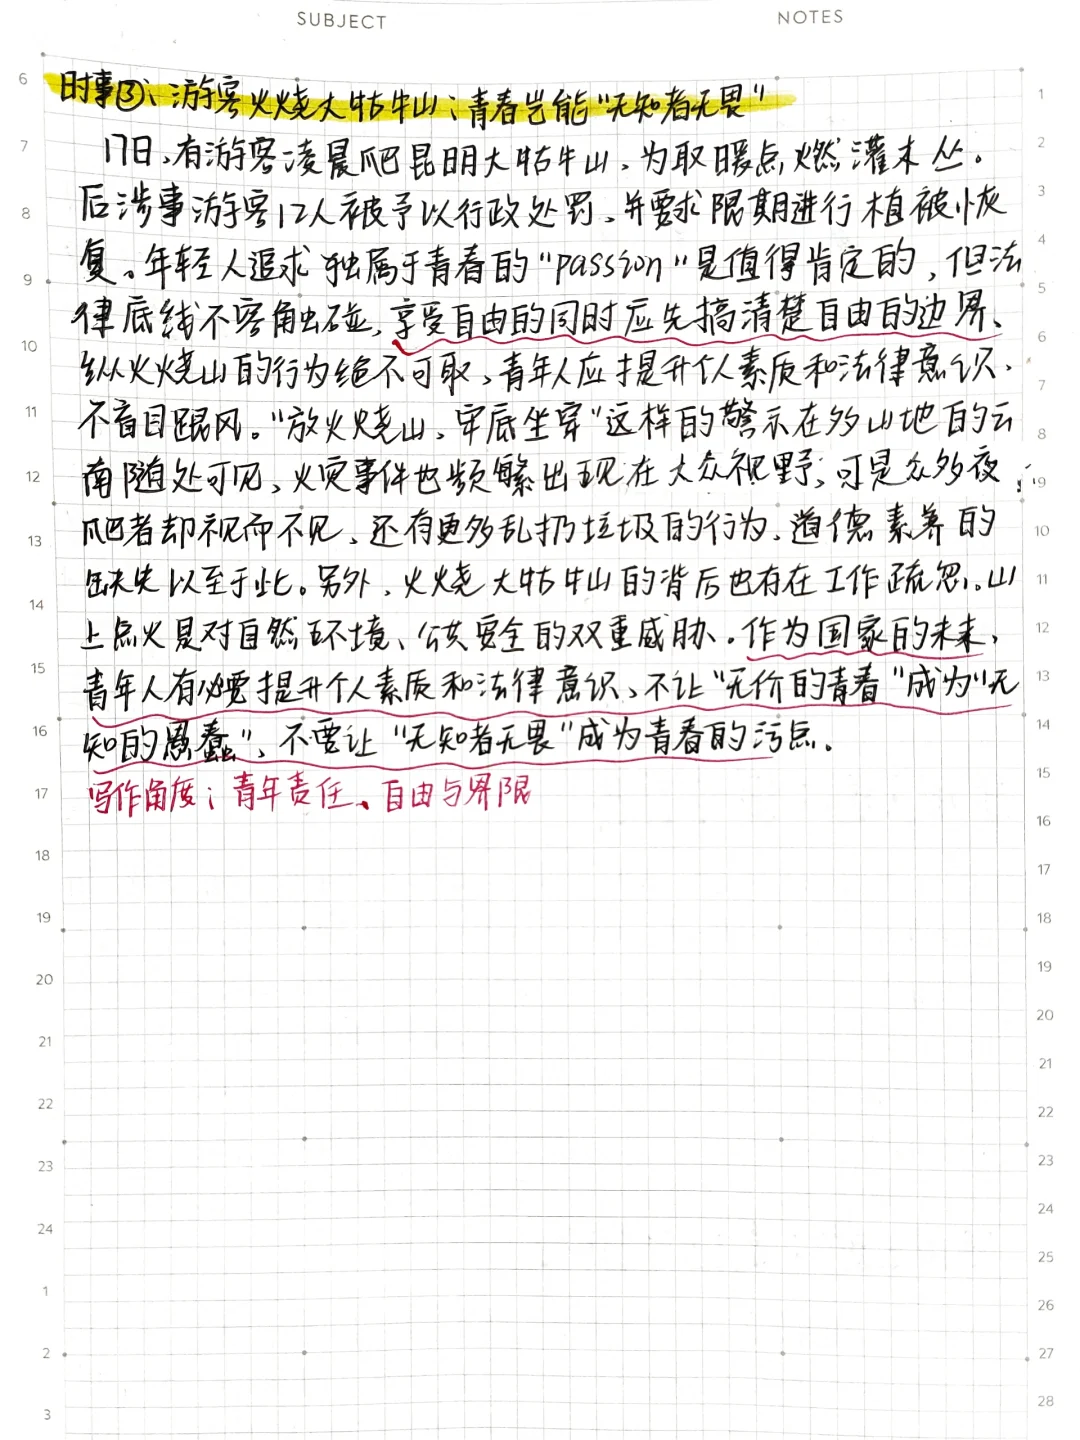 SUBJECT
NOTES
时事③、游客火烧大牯牛山：青春岂能“无知者无畏”
17日，有游客凌晨爬昆明大牯牛山，为取暖点燃灌木丛。
后涉事游客12人被予以行政处罚，并要求限期进行植被恢
复。年轻人追求独属于青春的“passion”是值得肯定的，但法
律底线不容触碰，享受自由的同时应先搞清楚自由的边界、
纵火火烧山的行为绝不可取，青年人应提升个人素质和法律意识，
不盲目跟风。“放火烧山，牢底坐穿”这样的警示在多山地的云
南随处可见，火灾事件也频繁出现在大众视野，可是众多夜
爬者却视而不见，还有更多乱扔垃圾的行为，道德素养的
缺失以至于此。另外，火烧大牯牛山的背后也存在工作疏忽。山
上点火是对自然环境、公共安全的双重威胁。作为国家的未来，
青年人有必要提升个人素质和法律意识、不让“无价的青春”成为“无
知的愚蠢”，不要让“无知者无畏”成为青春的污点。
写作角度：青年责任、自由与界限
6
7
8
9
10
11
12
13
14
15
16
17
18
19
20
21
22
23
24
1
2
3
1
2
3
4
5
6
7
8
9
10
11
12
13
14
15
16
17
18
19
20
21
22
23
24
25
26
27
28